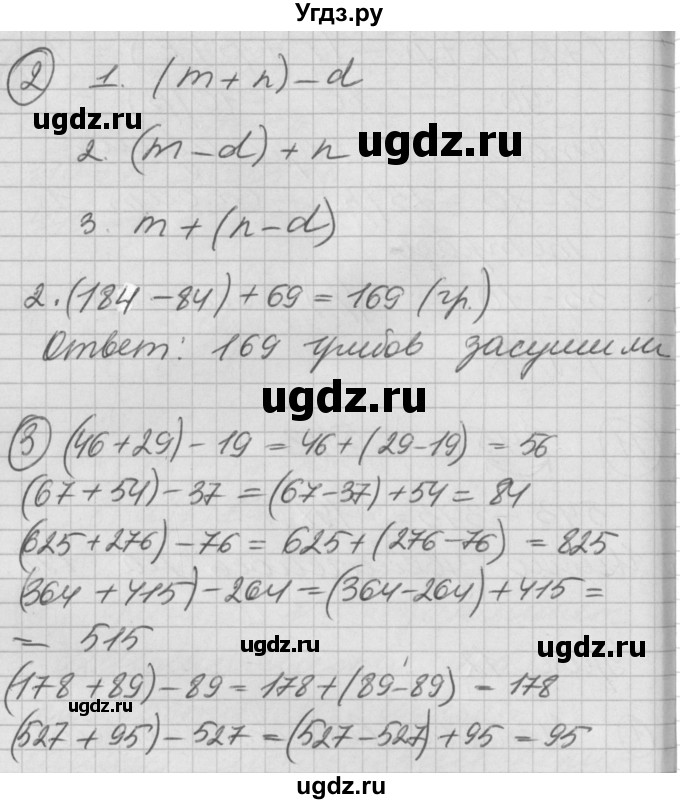 Угдз.ру
② 1. (m+n)-d
ugdz.ru
ugdz.ru
2. (m-d)+n
3. m+(n-d)
2.(184-84)+69=169 (гр.)
Ответ: 169 грибов засушили
ugdz.ru
③ (46+29)-19=46+(29-19)=56
(67+54)-37=(67-37)+54=84
(625+276)-76=625+(276-76)=825
(364+415)-264=(364-264)+415=
=515
ugdz.ru
ugdz.ru
(178+89)-89=178+(89-89)-178
ugdz.ru
(527+95)-527=(527-527)+95=95
ugdz.ru